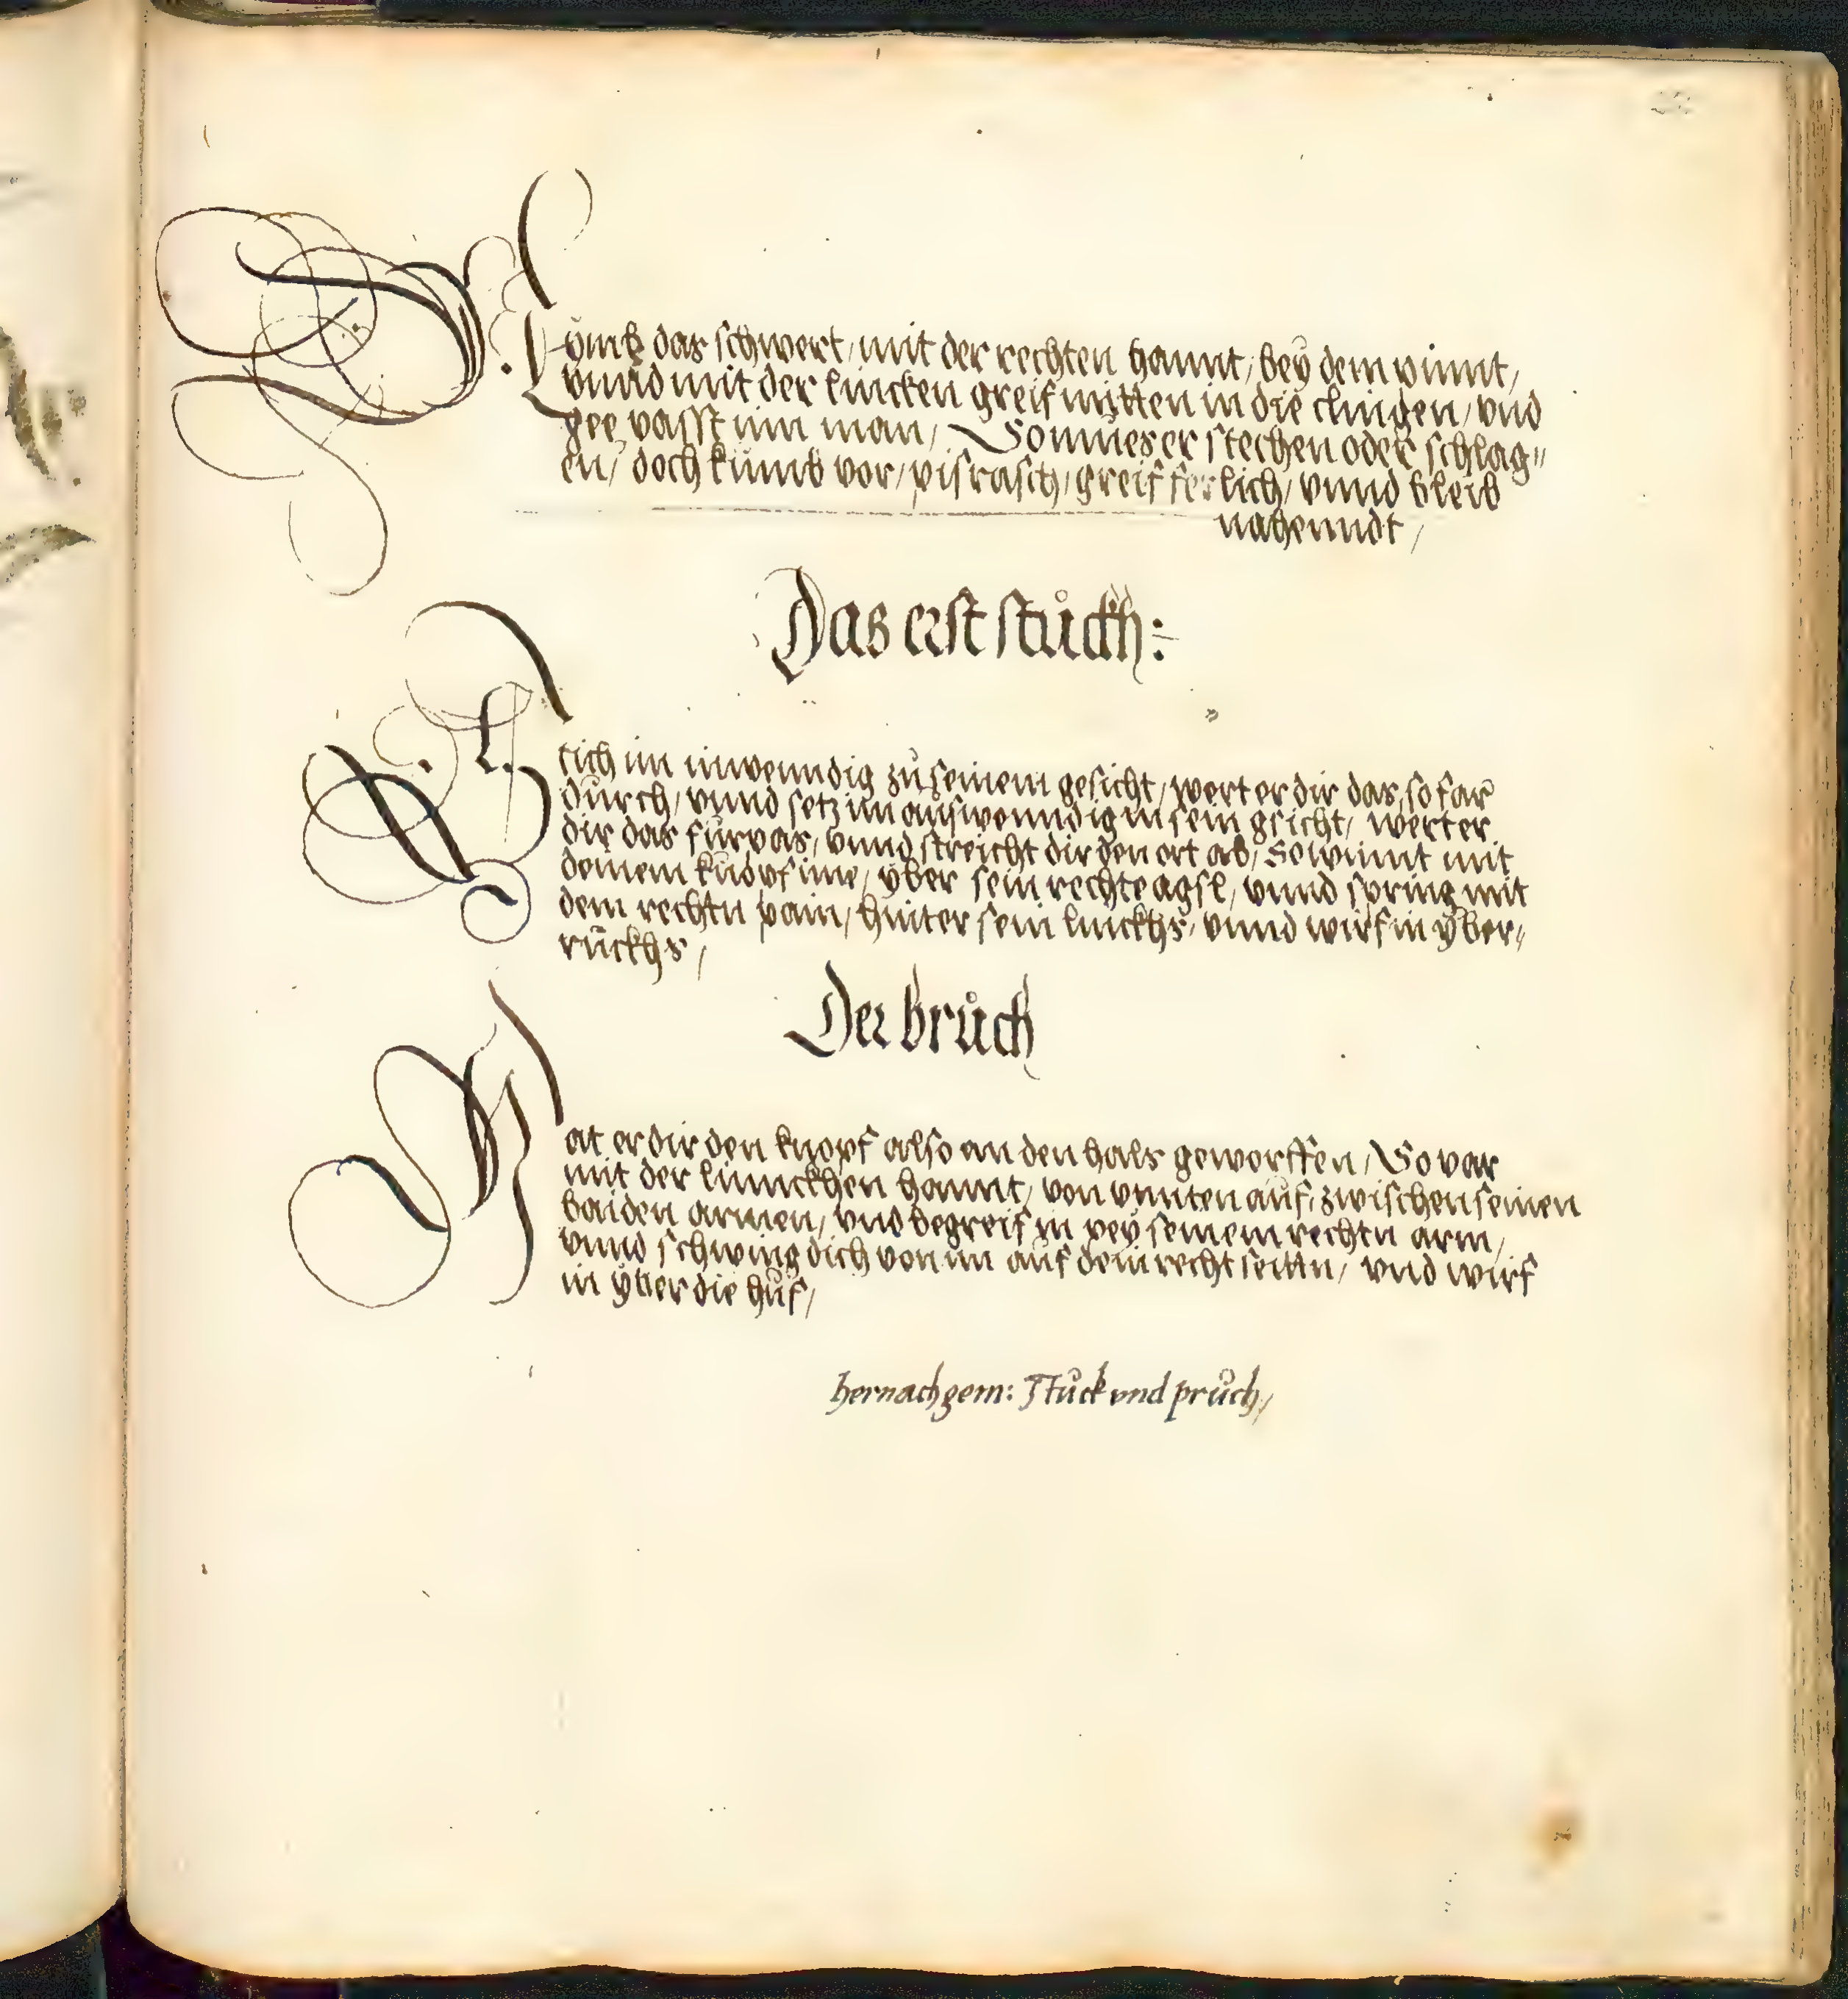 Nymb das schwert, mit der rechten hannt, bey dem pinnt,
vnnd mit der lincken greif mitten in die clingen, vnd
gee vasst inn man, So mues er stechen oder schlag=
en, doch kumb vor, pis rasch, greif ferlich, vnnd bleib
nahenndt,
Das erst stuckh:
Stich im inwenndig zu seinem gesicht, wert er dir das, so far
durch, vnnd setz im auswenndig in sein gsicht, wert er
dir das fürpas, vnnd streicht dir den ort ab, So winnt mit
deinem knopf ime, yber sein rechte agsl, vnnd spring mit
dem rechtn pain, hinter sein linckhs, vnnd wirf in yber=
rückhs,
Der bruch
Hat er dir den knopf also an den hals geworffen, So var
mit der linnckhen hannt, von vnnten auf, zwischen seinen
baiden armen, vnd begreif in pey seinem rechtn arm,
vnnd schwing dich von im auf dein recht seittn, vnd wirf
in yber die huf,
hernach gem: stuck vnd pruch,